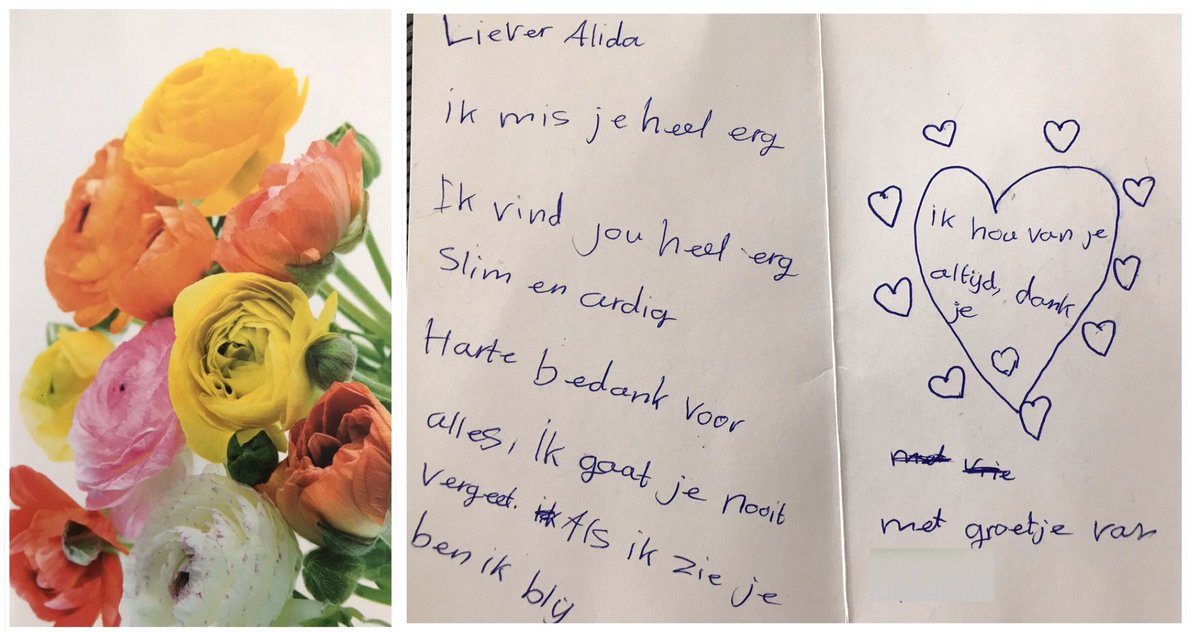 Liever Alida
ik mis je heel erg
Ik vind jou heel erg
Slim en ardig
Harte bedank voor
alles, ik gaat je nooit
vergeet. Als ik zie je
ben ik blij
ik hou van je
altijd, dank
je
met vrie
met groetje van